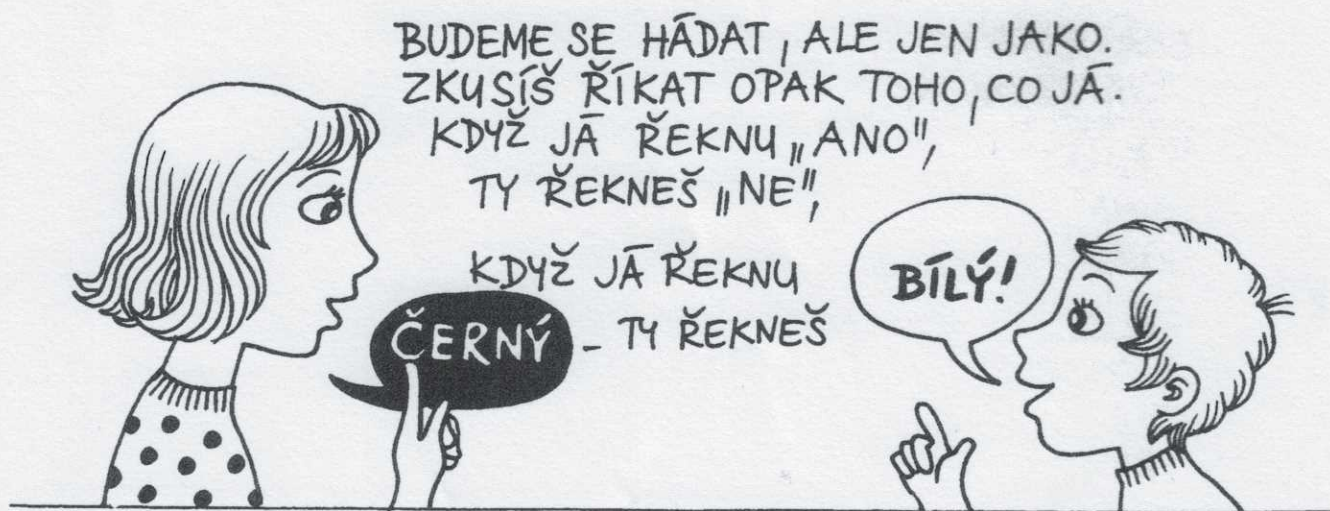 BUDEME SE HÁDAT, ALE JEN JAKO.
ZKUSÍŠ ŘÍKAT OPAK TOHO, CO JÁ.
KDYŽ JÁ ŘEKNU „ANO",
TY ŘEKNEŠ „NE",
KDYŽ JÁ ŘEKNU
ČERNÝ - TY ŘEKNEŠ
BÍLÝ!